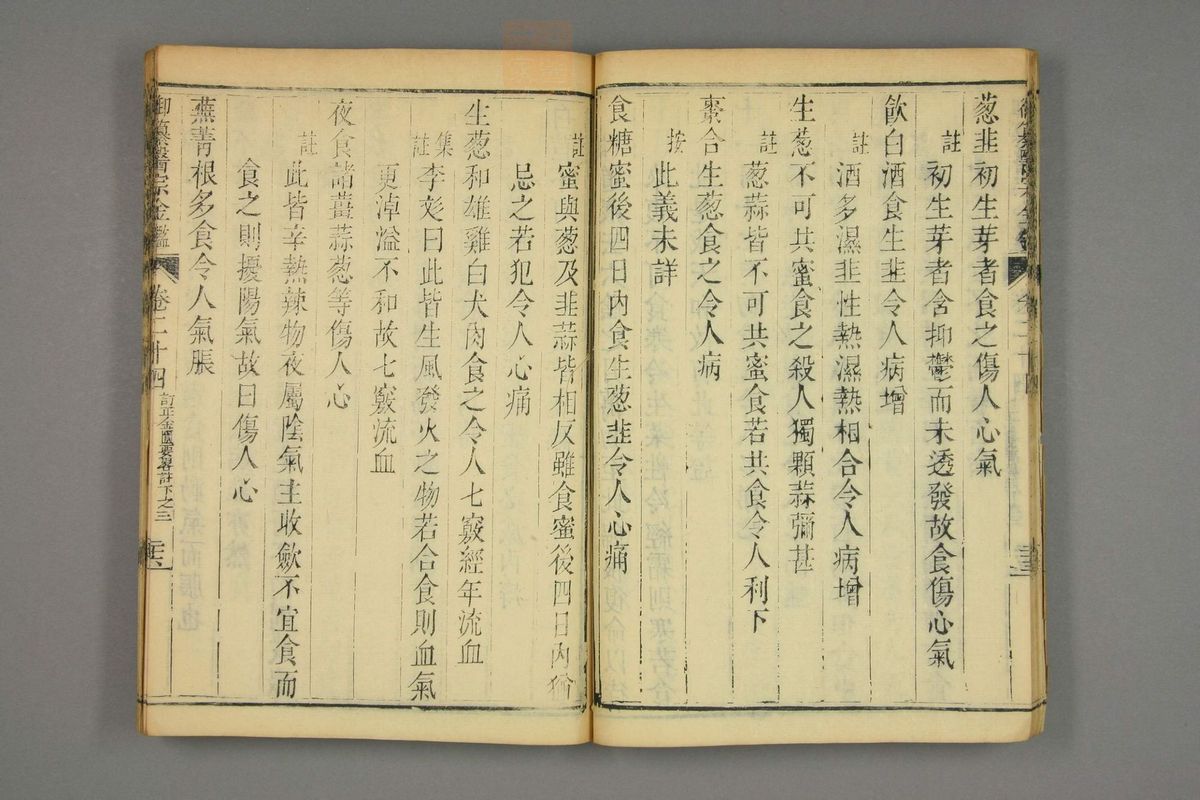 葱韭初生芽者食之傷人心氣
註 初生芽者含抑鬱而未透發故食傷心氣
飲白酒食生韭令人病增
註 酒多濕韭性熱濕熱相合令人病增
生葱不可共蜜食之殺人獨顆蒜彌甚
註 葱蒜皆不可共蜜食若共食令人利下
棗合生葱食之令人病
按 此義未詳
食糖蜜後四日內食生葱韭令人心痛
註 蜜與葱及韭蒜皆相反雖食蜜後四日內猶
忌之若犯令人心痛
生葱和雄雞白犬肉食之令人七竅經年流血
集註 李彣曰此皆生風發火之物若合食則血氣
更淖溢不和故七竅流血
夜食諸薑蒜葱等傷人心
註 此皆辛熱辣物夜屬陰氣主收斂不宜食而
食之則擾陽氣故曰傷人心
蕪菁根多食令人氣脹
御纂醫宗金鑑 卷二十四 訂正金匱要略註下之三